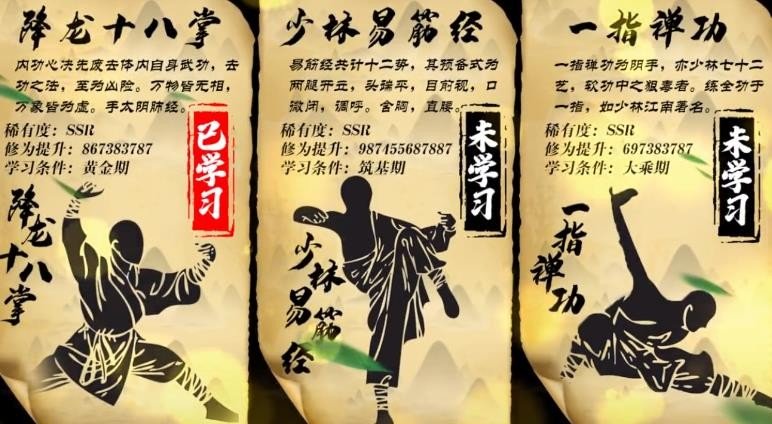 降龙十八掌
内功心决先废去体内自身武功，去
功之法，至为凶险。万物皆无相，
万象皆为虚。手太阴肺经。
稀有度：SSR
修为提升：867383787
学习条件：黄金期
已学习
降龙
十八
掌
少林易筋经
易筋经共计十二势，其预备式为
两腿开立，头端平，目前视，口
微闭，调呼。含胸，直腰。
稀有度：SSR
修为提升：987455687887
学习条件：筑基期
未学习
少林
易筋
经
一指禅功
一指禅功为阴手，亦少林七十二
艺，软功中之狠毒者。练全功于
一指，如少林江南著名。
稀有度：SSR
修为提升：697383787
学习条件：大乘期
未学习
一指
禅功